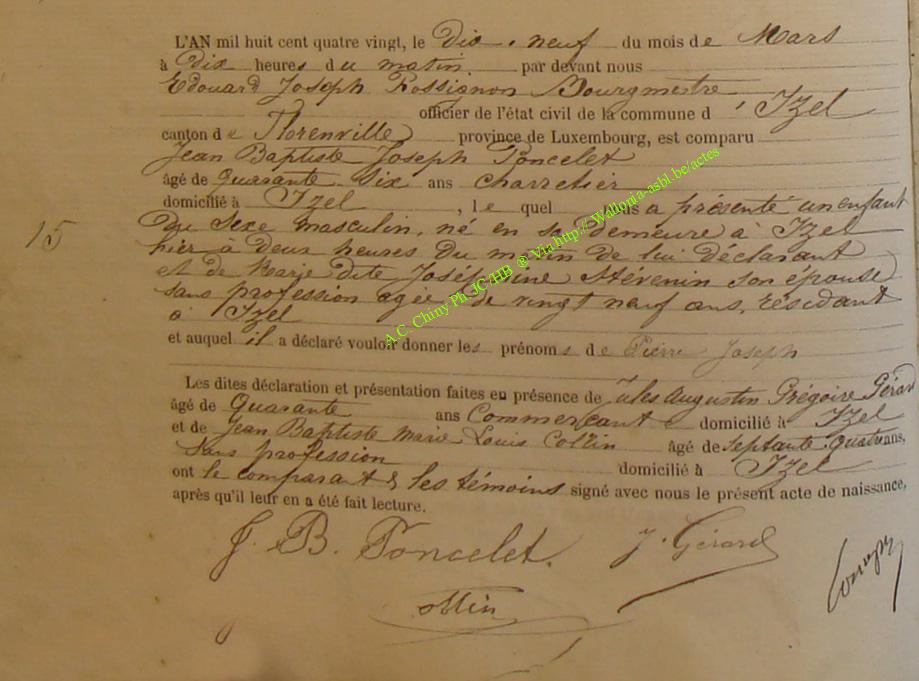 L'AN mil huit cent quatre vingt, le Dix-neuf du mois de Mars
à Dix heures du matin. par devant nous
Edouard Joseph Rossignon Bourgmestre
officier de l'état civil de la commune d'Izel
canton de Florenville province de Luxembourg, est comparu
Jean Baptiste Joseph Poncelet
âgé de Quarante six ans charretier
domicilié à Izel, lequel nous a présenté un enfant
15 Du Sexe masculin, né en sa Demeure à Izel
hier à deux heures Du matin de lui Déclarant
et de Marie dite Joséphine Stévenin son épouse
sans profession agée de vingt neuf ans, résidant
à Izel
et auquel il a déclaré vouloir donner les prénoms de Pierre Joseph
Les dites déclaration et présentation faites en présence de Jules Augustin Grégoire Gérard
âgé de Quarante ans Commerçant domicilié à Izel
et de Jean Baptiste Marie Louis Collin âgé de septante quatre ans,
Sans profession domicilié à Izel
ont le comparant & les témoins signé avec nous le présent acte de naissance,
après qu'il leur en a été fait lecture.
J. B. Poncelet. J. Gérard
Collin
A.C. Chiny Ph JC/HB ® Via http://Wallonia-asbl.be/actes